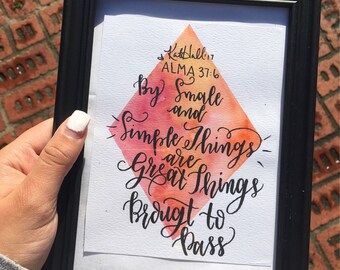 Kat Hall '17
ALMA 37:6
By Small
and
Simple Things
are
Great Things
Brougt to
Pass